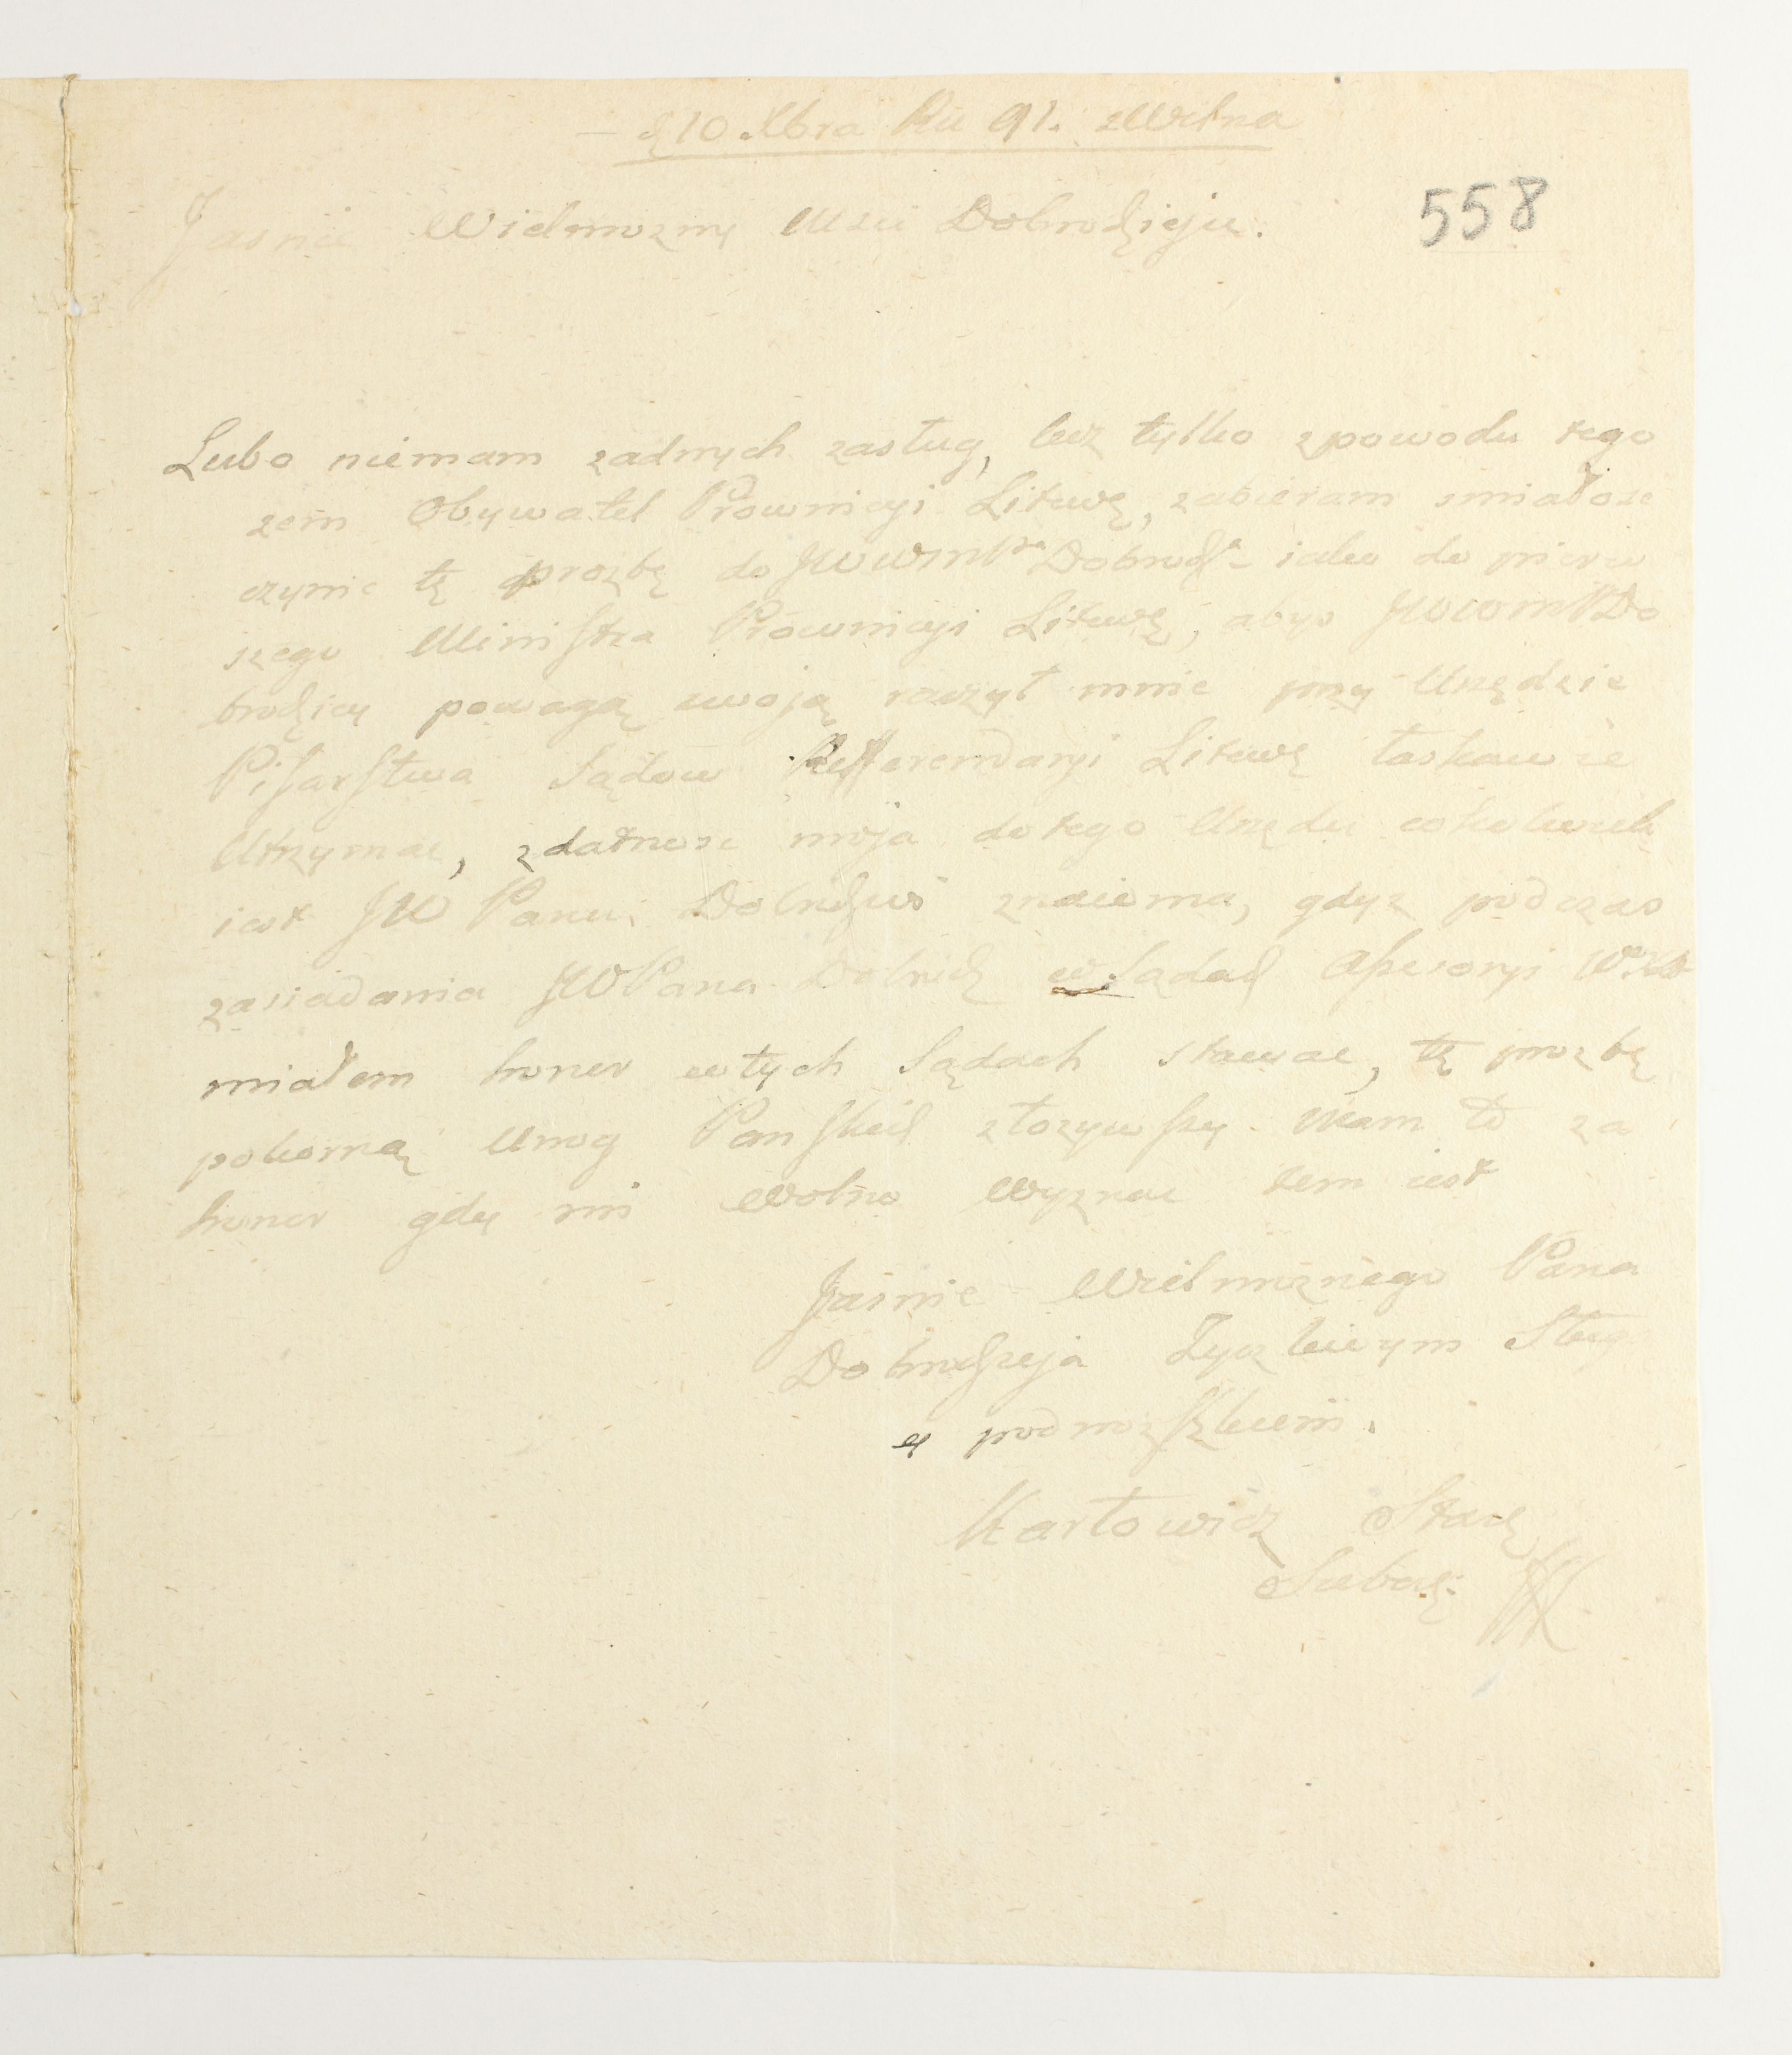 — d 10 Xbra Ru 91. z Wilna
558
Jasnie Wielmozny Msci Dobrodzieju.
Lubo niemam zadnych zasług, lecz tylko zpowodu tego
zem Obywatel Prowincyi Litewę, zabieram smiałosc
czynic tę prozbę do JWWMPna Dobrodza iako do pierw
szego Ministra Prowincyi Litewę, abys JWWMP Do
brodziey powagą swoją raczył mnie przy Urzędzie
Pisarstwa Sądow Refferendaryi Litewę łaskawie
Utrzymac, zdatnosc moja do tego Urzędu cokolwiek
iest JW Panu Dobrodzwi znaiema, gdyz podczas
zasiadania JWPana Dobrodz w Sądach Assesoryi
miałem honor w tych Sądach stawac, tę prozbę
pokorną Unog Panskich złozywszy. Mam to za
honor gdy mi wolno wyznac zem iest
Jasnie Wielmoznego Pana
Dobrodzieja Zyczliwym Sług
ą podnozszkiem.
Karłowicz Starę